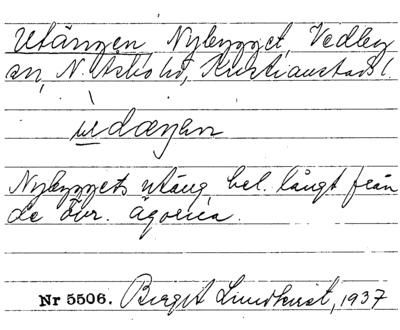 Utängen, Nybygget, Vedby
sn, N. Åsbo hd, Kristianstads l.
ùdæŋən
Nybyggets utäng, bel. långt från
de övr. ägorna.
Nr 5506. Birgit Lundkvist, 1937